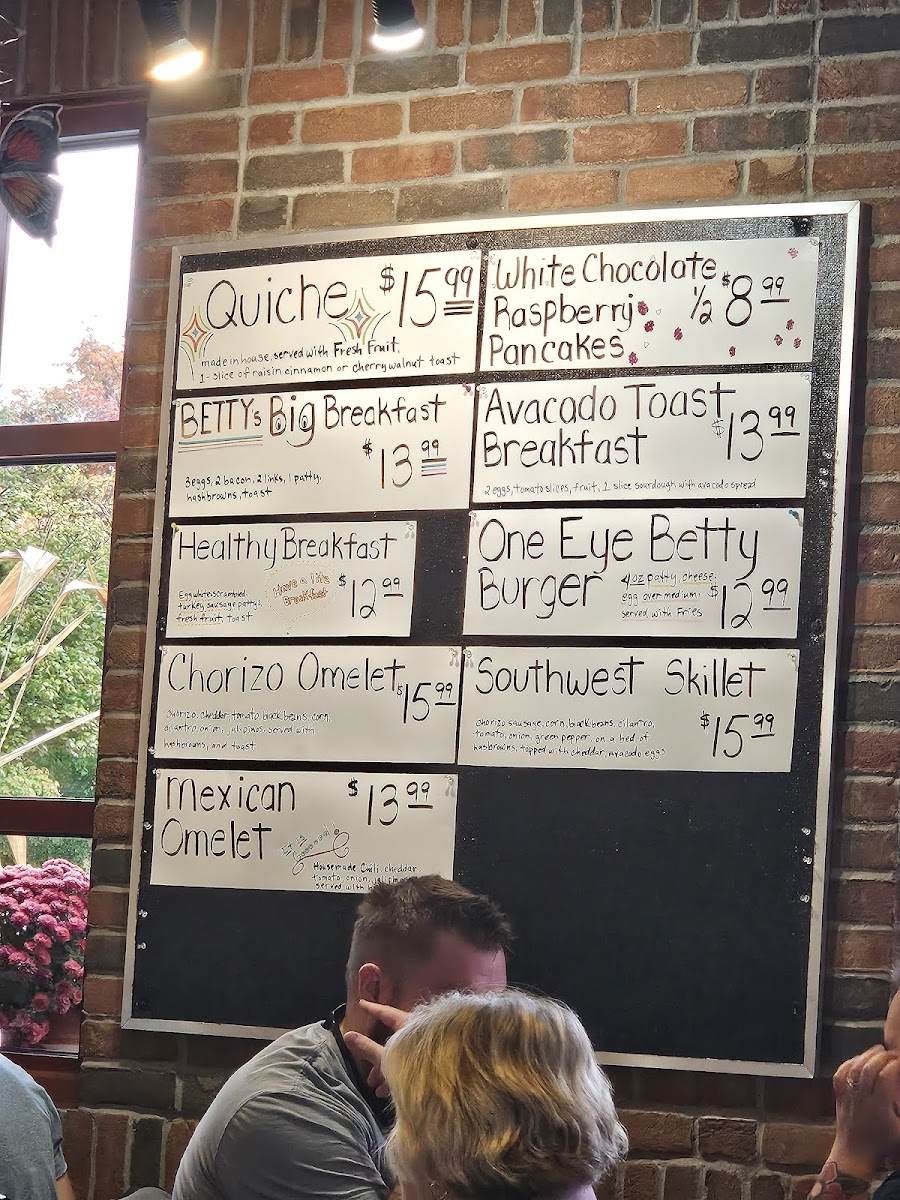 Quiche $15.99
made in house, served with Fresh Fruit,
1- slice of raisin cinnamon or cherry walnut toast
White Chocolate
Raspberry
Pancakes
1/2 $8.99
BETTY's Big Breakfast
$13.99
3 eggs, 2 bacon, 2 links, 1 patty,
hasbrowns, toast
Avacado Toast
Breakfast
$13.99
2 eggs, tomato slices, fruit, 1 slice sourdough with avacado spread
Healthy Breakfast
Egg whites scrambled,
turkey sausage patty,
fresh fruit, toast
Have a lite
Breakfast
$12.99
One Eye Betty
Burger
4oz patty, cheese,
egg over medium,
served with Fries
$12.99
Chorizo Omelet
$15.99
chorizo, cheddar, tomato, black beans, corn,
cilantro, onion, jalipinos, served with
hashbrowns, and toast
Southwest Skillet
chorizo sausage, corn, black beans, cilantro,
tomato, onion, green pepper, on a bed of
hasbrowns, topped with cheddar, avacado, eggs
$15.99
Mexican
Omelet
$13.99
It is
Housemade Chili, cheddar
tomato, onion,
served with